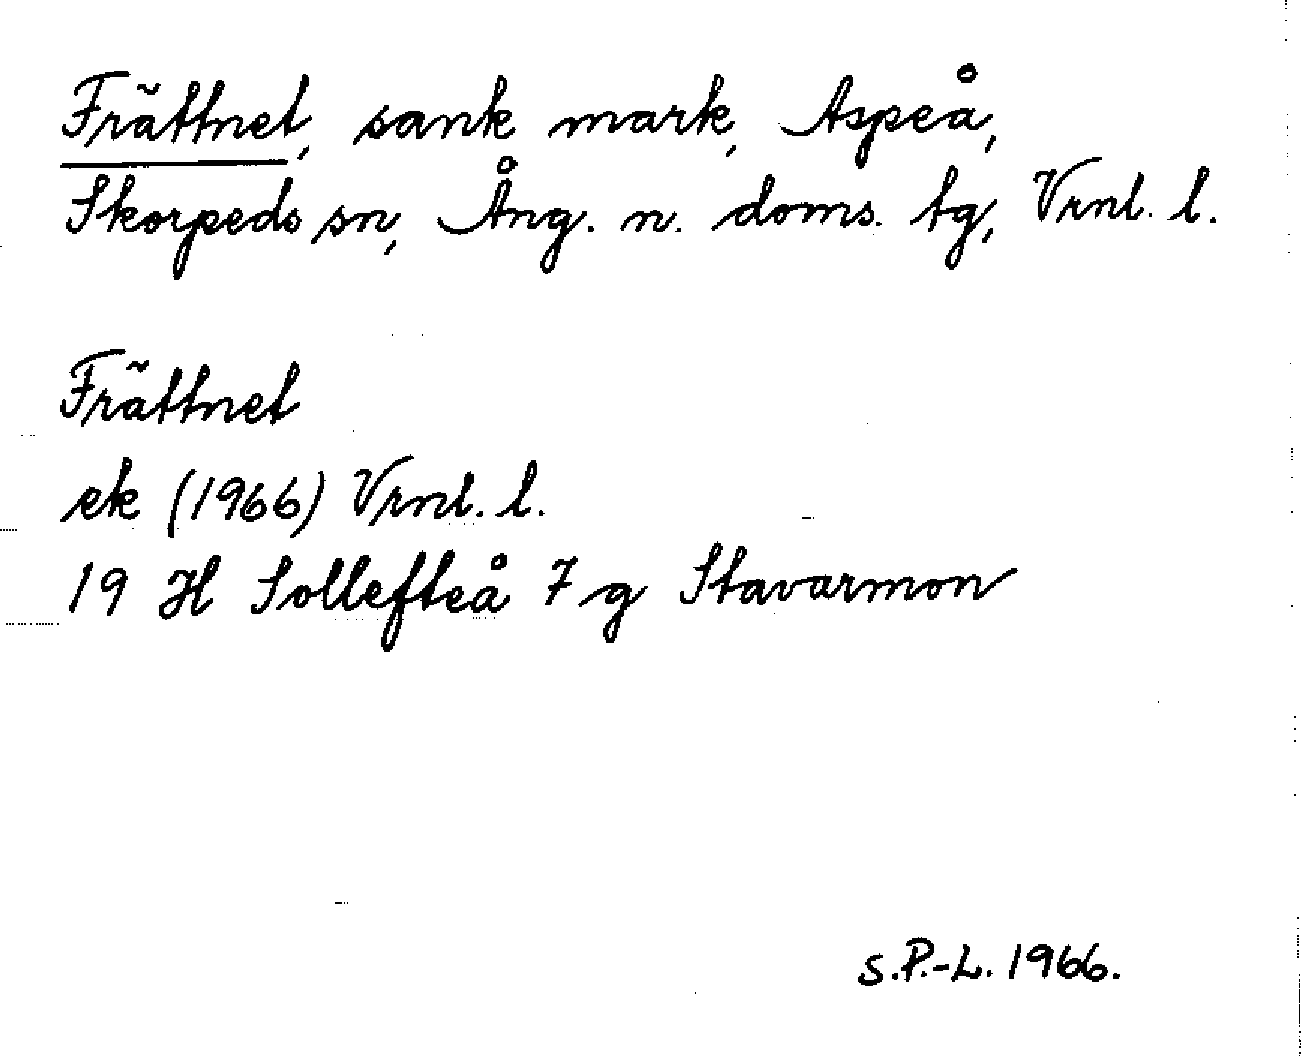 Frättnet, sank mark, Aspeå,
Skorpeds sn, Ång. n. doms. tg, Vrnl. l.
Frättnet
ek (1966) Vrnl. l.
19 H Sollefteå 7 g Stavarmon
S.P.-L. 1966.